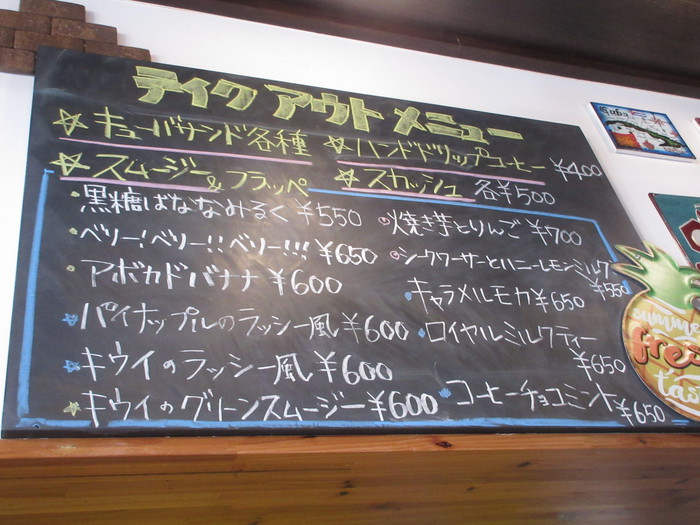 テイクアウトメニュー
☆キューバサンド各種
☆ハンドドリップコーヒー ¥400
☆スムージー&フラッペ
☆スカッシュ 各¥500
・黒糖ばななみるく ¥550
・ベリー!ベリー!!ベリー!!! ¥650
・アボカドバナナ ¥600
☆パイナップルのラッシー風 ¥600
☆キウイのラッシー風 ¥600
☆キウイのグリーンスムージー ¥600
・焼き芋とりんご ¥700
・シークワーサーとハニーレモンミルク ¥550
・キャラメルモカ ¥650
・ロイヤルミルクティー ¥650
・コーヒーチョコミント ¥650
Cuba
summe
fres
tas